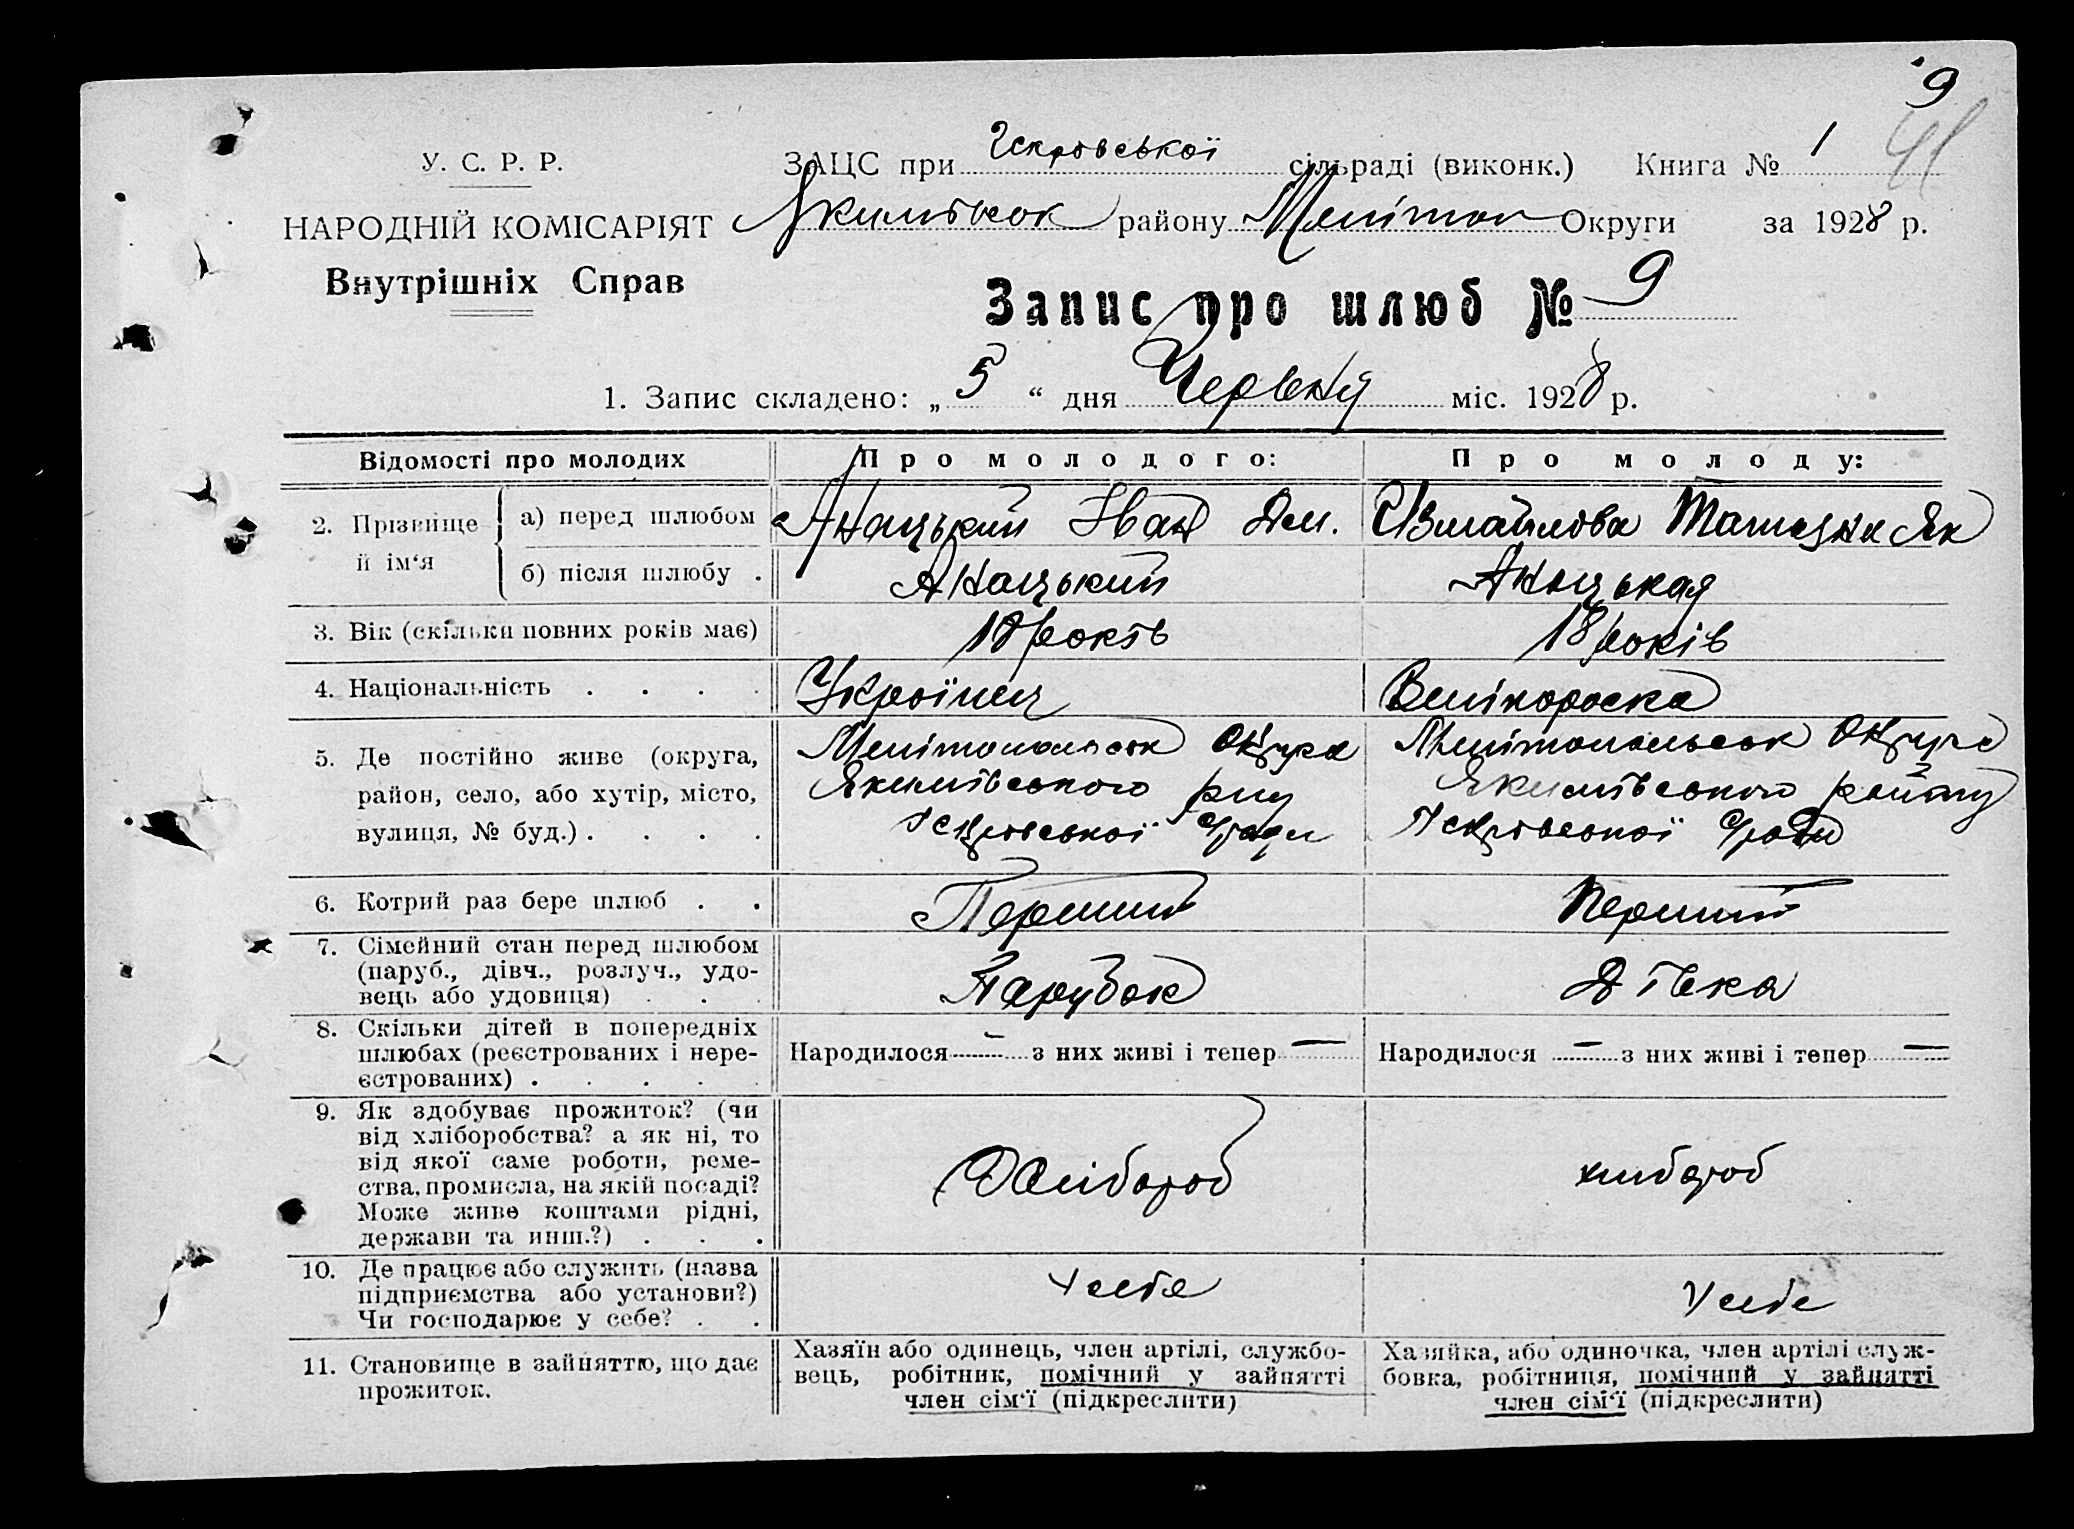 9
41
У. С. Р. Р.
ЗАЦС при Іскровської сільраді (виконк.) Книга № 1
НАРОДНІЙ КОМІСАРІЯТ
Якимівськ району Мелітоп Округи за 1928 р.
Внутрішніх Справ
Запис про шлюб № 9
1. Запис складено: „ 5 “ дня Червня міс. 1928 р.
Відомості про молодих
Про молодого:
Про молоду:
2. Прізвище й ім‘я
а) перед шлюбом
Анацький Іван Дм.
Ізмайлова Як
б) після шлюбу .
Анацький
Анацькая
3. Вік (скільки повних років має)
18 років
18 років
4. Національність . . . .
Українец
Велікороска
5. Де постійно живе (округа,
район, село, або хутір, місто,
вулиця, № буд.) . . . .
Мелітопольськ Округа
Якимівського р-ну
Іскровської с/ради
Мелітопольськ Округа
Якимівського району
Іскровської с/ради
6. Котрий раз бере шлюб . .
Перший
Перший
7. Сімейний стан перед шлюбом
(паруб., дівч., розлуч., удо-
вець або удовиця) . . .
Парубок
Дівка
8. Скільки дітей в попередніх
шлюбах (реєстрованих і нере-
єстрованих) . . . . .
Народилося — з них живі і тепер —
Народилося — з них живі і тепер —
9. Як здобуває прожиток? (чи
від хліборобства? а як ні, то
від якої саме роботи, реме-
ства, промисла, на якій посаді?
Може живе коштами рідні,
держави та инш.?) . . .
Хлібороб
хлібороб
10. Де працює або служить (назва
підприємства або установи?)
Чи господарює у себе? . .
У себе
У себе
11. Становище в зайняттю, що дає
прожиток.
Хазяїн або одинець, член артілі, службо-
вець, робітник, помічний у зайнятті
член сім‘ї (підкреслити)
Хазяйка, або одиночка, член артілі служ-
бовка, робітниця, помічний у зайнятті
член сім‘ї (підкреслити)